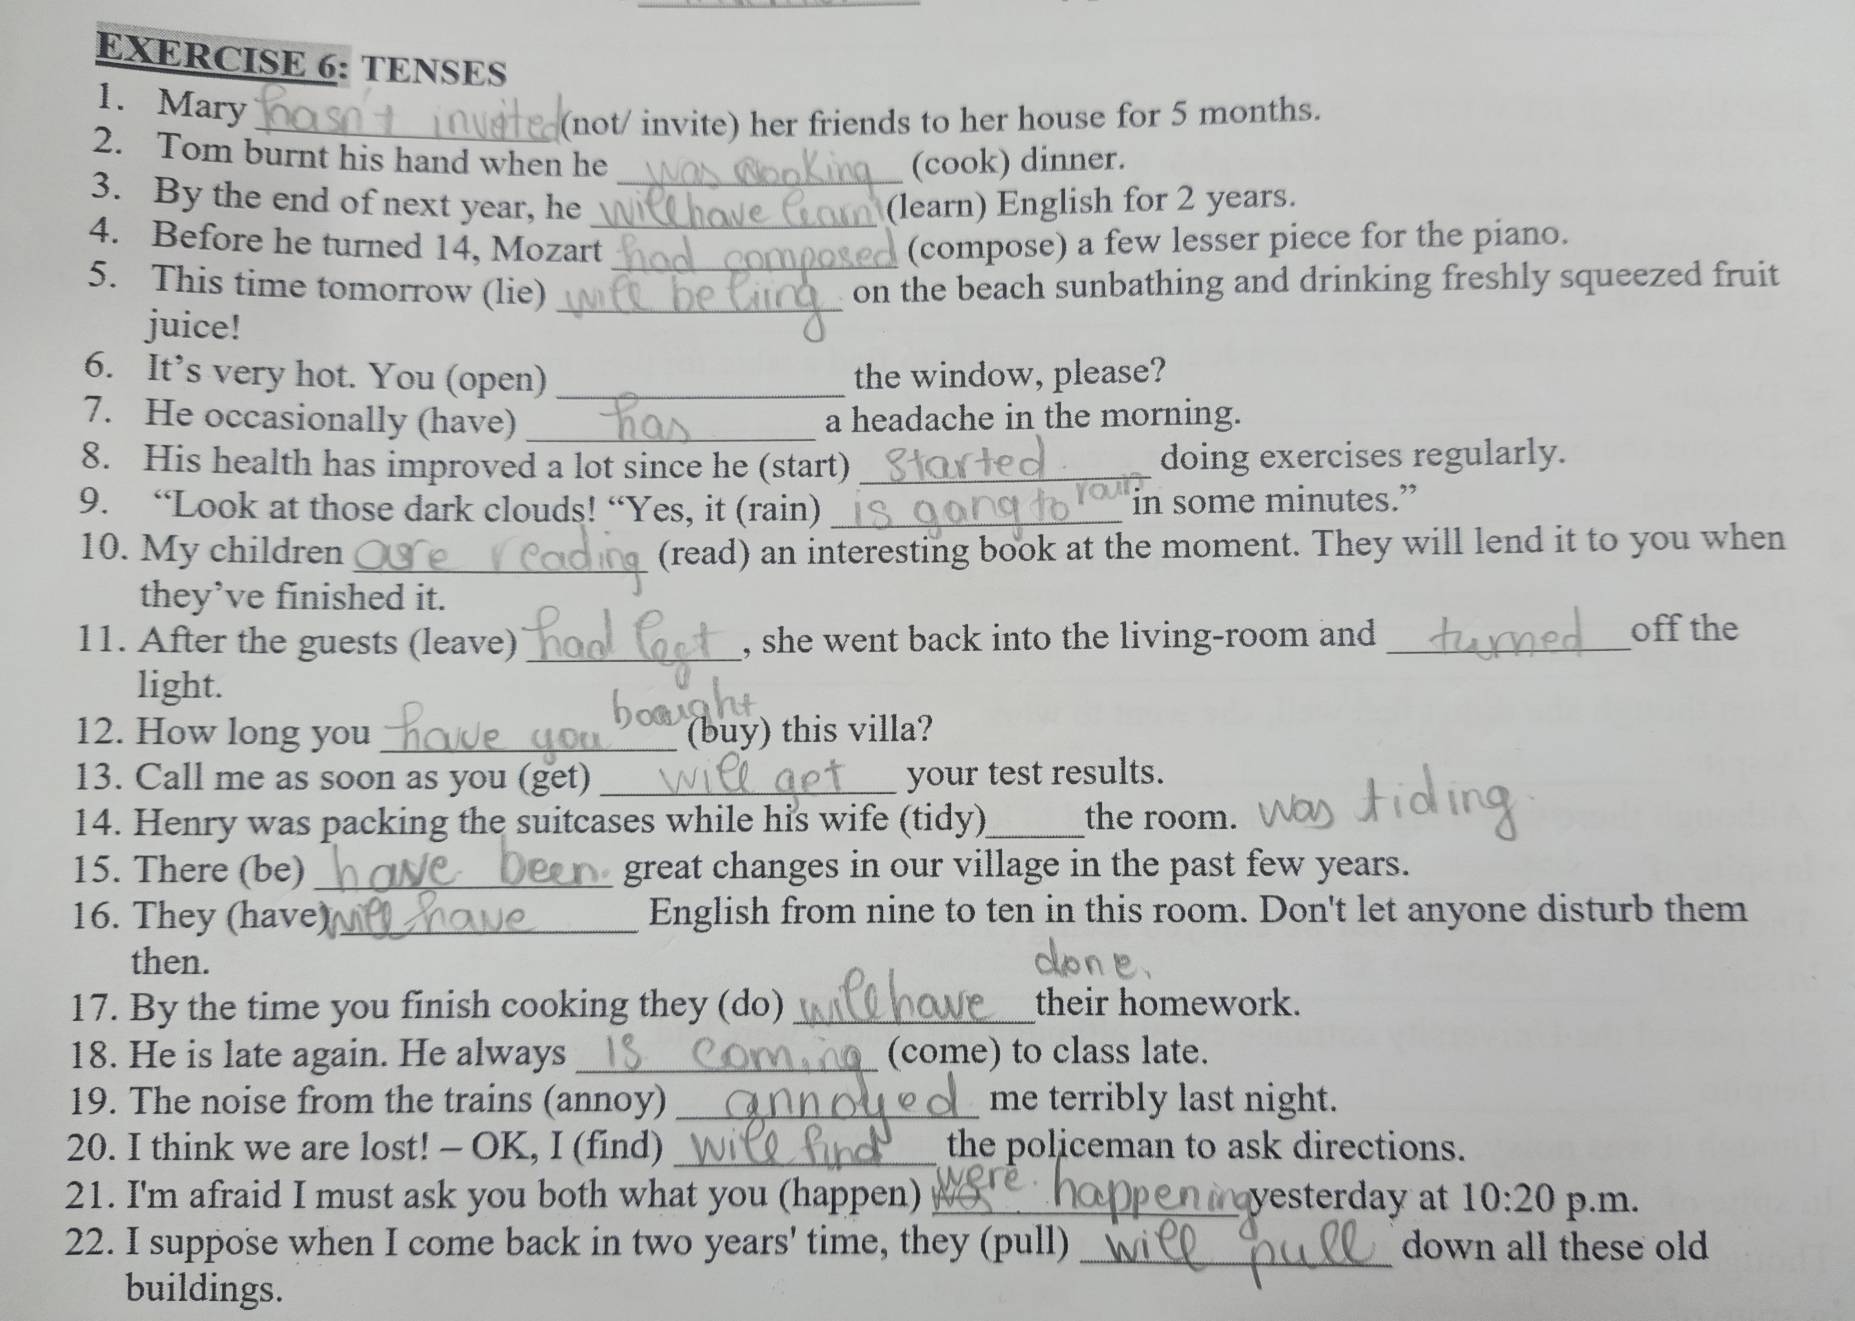 EXERCISE 6: TENSES
1. Mary hasn't invited (not/ invite) her friends to her house for 5 months.
2. Tom burnt his hand when he was cooking (cook) dinner.
3. By the end of next year, he will have learn (learn) English for 2 years.
4. Before he turned 14, Mozart had composed (compose) a few lesser piece for the piano.
5. This time tomorrow (lie) will be liing on the beach sunbathing and drinking freshly squeezed fruit
juice!
6. It's very hot. You (open) ____________ the window, please?
7. He occasionally (have) has a headache in the morning.
8. His health has improved a lot since he (start) started doing exercises regularly.
9. “Look at those dark clouds! “Yes, it (rain) is gong to rain in some minutes.”
10. My children are reading (read) an interesting book at the moment. They will lend it to you when
they've finished it.
11. After the guests (leave) had left, she went back into the living-room and turned off the
light.
12. How long you have you bought (buy) this villa?
13. Call me as soon as you (get) will get your test results.
14. Henry was packing the suitcases while his wife (tidy)______the room. was tiding
15. There (be) have been great changes in our village in the past few years.
16. They (have) will have English from nine to ten in this room. Don't let anyone disturb them
then.
17. By the time you finish cooking they (do) will have done their homework.
18. He is late again. He always is coming (come) to class late.
19. The noise from the trains (annoy) annoyed me terribly last night.
20. I think we are lost! – OK, I (find) will find the policeman to ask directions.
21. I'm afraid I must ask you both what you (happen) were happening yesterday at 10:20 p.m.
22. I suppose when I come back in two years' time, they (pull) will pull down all these old
buildings.